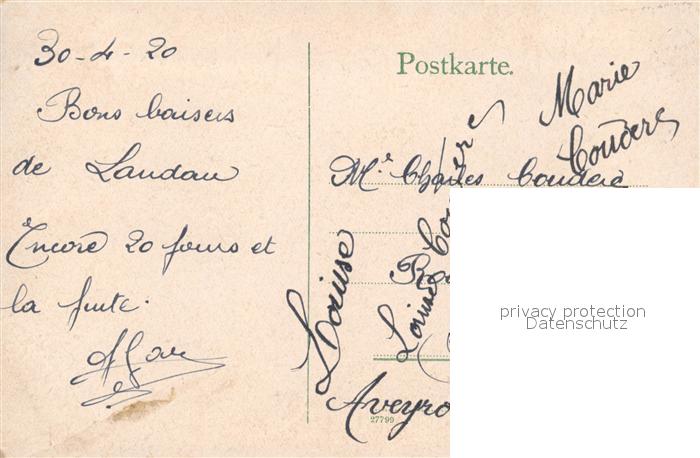 30-4-20
Bons baisers
de Landau
Encore 20 jours et
la fuite.
Postkarte.
Marie
Couderc
Me Charles Couderc
Louise
Louise
Aveyro
27799
privacy protection
Datenschutz